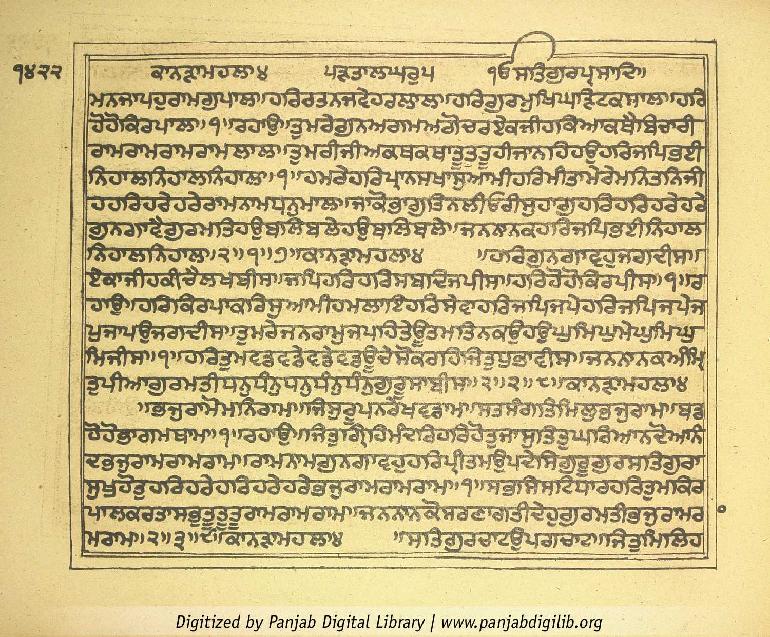 ੧੪੨੨
ਕਾਨੜਾਮਹਲਾ੪ ਪੜਤਾਲਘਰੁ੫ ੴਸਤਿਗੁਰਪ੍ਰਸਾਦਿ॥
ਮਨਜਾਪਹੁਰਾਮਗੁਪਾਲ॥ਹਰਿਰਤਨਜਵੇਹਰਲਾਲ॥ਹਰਿਗੁਰਮੁਖਿਘੜਿਟਕਸਾਲ॥ਹਰਿ
ਹੋਹੋਕਿਰਪਾਲ॥੧॥ਰਹਾਉ॥ਤੁਮਰੇਗੁਨਅਗਮਅਗੋਚਰਏਕਜੀਹਕਿਆਕਥੈਬਿਚਾਰੀ
ਰਾਮਰਾਮਰਾਮਰਾਮਲਾਲ॥ਤੁਮਰੀਜੀਅਕਥਕਥਾਤੂਤੂਤੂਹੀਜਾਨਹਿਹਉਹਰਿਜਪਿਭਈ
ਨਿਹਾਲਨਿਹਾਲਨਿਹਾਲ॥੧॥ਹਮਰੇਹਰਿਪ੍ਰਾਨਸਖਾਸੁਆਮੀਹਰਿਮੀਤਾਮੇਰੇਮਨਿਤਨਿਜੀ
ਹਹਰਿਹਰੇਹਰੇਰਾਮਨਾਮਧਨੁਮਾਲ॥ਜਾਕੋਭਾਗੁਤਿਨਲੀਓਰੀਸੁਹਾਗੁਹਰਿਹਰਿਹਰੇਹਰੇ
ਗੁਨਗਾਵੈਗੁਰਮਤਿਹਉਬਲਿਬਲੇਹਉਬਲਿਬਲੇ॥ਜਨਨਾਨਕਹਰਿਜਪਿਭਈਨਿਹਾਲ
ਨਿਹਾਲਨਿਹਾਲ॥੨॥੧॥੭॥ਕਾਨੜਾਮਹਲਾ੪ ॥ਹਰਿਗੁਨਗਾਵਹੁਜਗਦੀਸ॥
ਏਕਾਜੀਹਕੀਚੈਲਖਬੀਸ॥ਜਪਿਹਰਿਹਰਿਸਬਦਿਜਪੀਸ॥ਹਰਿਹੋਹੋਕਿਰਪੀਸ॥੧॥ਰ
ਹਾਉ॥ਹਰਿਕਿਰਪਾਕਰਿਸੁਆਮੀਹਮਲਾਇਹਰਿਸੇਵਾਹਰਿਜਪਿਜਪੇਹਰਿਜਪਿਜਪੇਜ
ਪੁਜਾਪਉਜਗਦੀਸ॥ਤੁਮਰੇਜਨਰਾਮੁਜਪਹਿਤੇਊਤਮਤਿਨਕਉਹਉਘੁਮਿਘੁਮੇਘੁਮਿਘੁ
ਮਿਜੀਸ॥੧॥ਹਰਿਤੁਮਵਡਵਡੇਵਡੇਵਡਊਚੇਸੋਕਰਹਿਜਿਤੁਧੁਭਾਵੀਸ॥ਜਨਨਾਨਕਅੰਮ੍ਰਿ
ਤੁਪੀਆਗੁਰਮਤੀਧਨੁਧੰਨੁਧਨੁਧੰਨੁਧੰਨੁਗੁਰੂਸਾਬੀਸ॥੨॥੨॥੮॥ਕਾਨੜਾਮਹਲਾ੪
॥ਭਜੁਰਾਮੋਮਨਿਰਾਮ॥ਜਿਸੁਰੂਪਨਰੇਖਵਡਾਮ॥ਸਤਸੰਗਤਿਮਿਲੁਭਜੁਰਾਮ॥ਬਡ
ਹੋਹੋਭਾਗਮਥਾਮ॥੧॥ਰਹਾਉ॥ਜਿਤੁਗ੍ਰਿਹਿਮੰਦਰਿਹਰਿਹੋਤੁਜਾਸੁਤਿਤੁਘਰਿਆਨਦੋਆਨੰ
ਦਭਜੁਰਾਮਰਾਮਰਾਮ॥ਰਾਮਨਾਮਗੁਨਗਾਵਹੁਹਰਿਪ੍ਰੀਤਮਉਪਦੇਸਿਗੁਰੂਗੁਰਸਤਿਗੁਰਾ
ਸੁਖੁਹੋਤੁਹਰਿਹਰੇਹਰਿਹਰੇਹਰੇਭਜੁਰਾਮਰਾਮਰਾਮ॥੧॥ਸਭਸਿਸਟਿਧਾਰਹਰਿਤੁਮਕਿਰ
ਪਾਲਕਰਤਾਸਭੁਤੂਤੂਤੂਰਾਮਰਾਮਰਾਮ॥ਜਨਨਾਨਕੋਸਰਣਾਗਤੀਦੇਹੁਗੁਰਮਤੀਭਜੁਰਾਮਰ
ਮਰਾਮ॥੨॥੩॥੯॥ਕਾਨੜਾਮਹਲਾ੪ ॥ਸਤਿਗੁਰਚਾਟਉਪਗਚਾਟ॥ਜਿਤੁਮਿਲਿਹ
Digitized by Panjab Digital Library | www.panjabdigilib.org